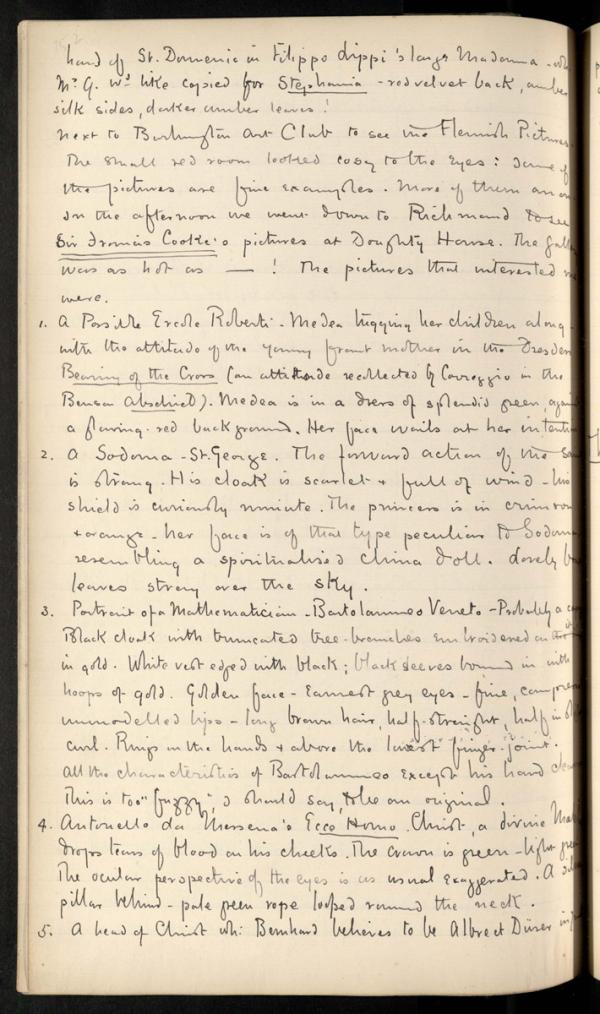 hand of St. Domenic in Filippo Lippi's large Madonna - wh
Mr G. wd like copied for Stephania - red velvet back, amber
silk sides, darker amber leaves!
Next to Burlington Art Club to see the Flemish Pictures
The small red room looked cosy to the eyes: some of
the pictures are fine examples. More of them anon.
In the afternoon we went down to Richmond to see
Sir Francis Cooke's pictures at Doughty House. The gall
was as hot as — ! The pictures that interested
were.
1. A Possible Ercole Roberti - Medea tugging her children along -
with the attitude of the young frant mother in the Dresden
Bearing of the Cross (an attitude recollected by Correggio in the
Benson Abschied). Medea is in a dress of splendid green, again
a flaring red background. Her face wails at her intention
2. A Sodoma - St. George. The forward action of the
is strong. His cloak is scarlet & full of wind - his
shield is curiously minute. The princess is in crimson
& orange - her face is of that type peculiar to Sodoma
resembling a spiritualised China doll. Lovely b
leaves strong over the sky.
3. Portrait of a Mathematician - Bartolommeo Veneto - Probably a
Black cloak with truncated tree-branches embroidered on
in gold. White vest edged with black; black sleeves bound in with
hoops of gold. Golden face - Earnest grey eyes - fine, compress
unmodelled lips - long brown hair, half-straight, half in
curl. Rings on the hands & above the lowest finger-joint.
All the characteristics of Bartolommeo except his hand
This is too "fuzzy", I should say, to be an original.
4. Antonello da Messena's Ecco Homo. Christ, a divine
drops tears of blood on his cheeks. The crown is green - light green
The ocular perspective of the eyes is as usual exaggerated. A
pillar behind - pale green rope looped round the neck.
5. A head of Christ wh: Bernhard believes to be Albrect Dürer